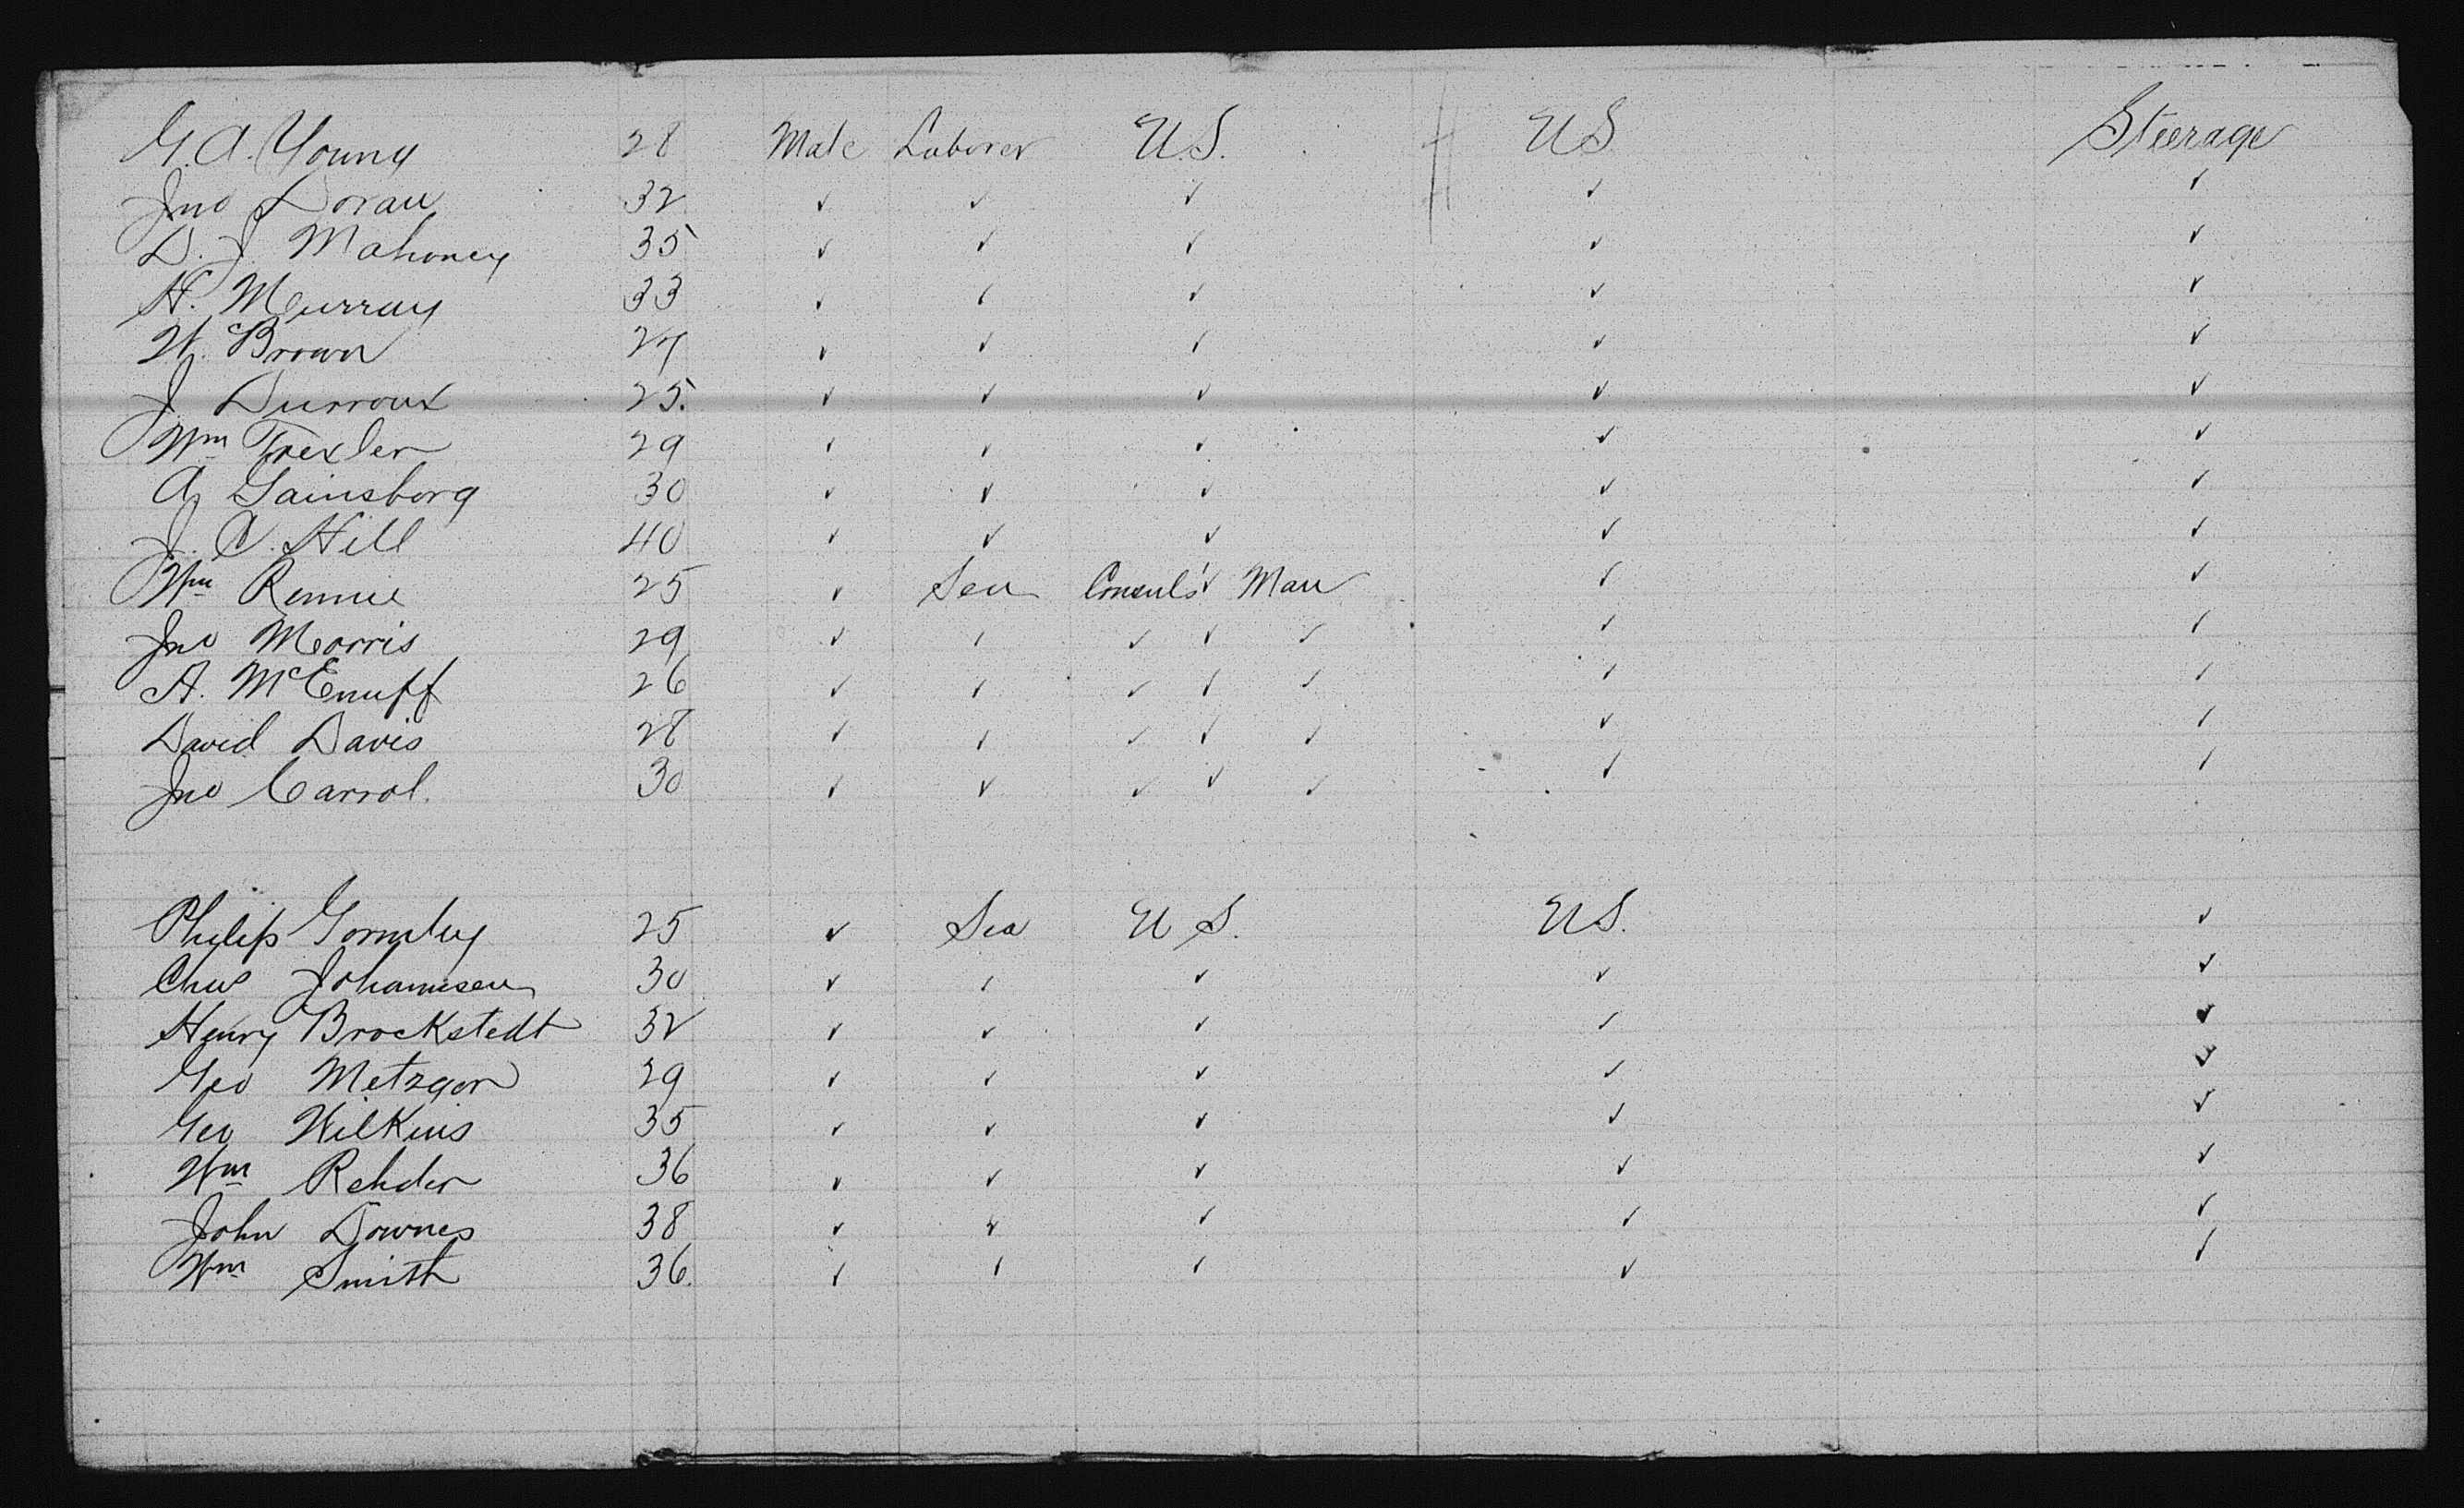 G. A. Young 28 Male Laborer U.S. US Steerage
Jno Doran 32 ✓ ✓ ✓ ✓ ✓
D. J. Mahoney 35 ✓ ✓ ✓ ✓ ✓
H. Murray 33 ✓ ✓ ✓ ✓ ✓
W. Brown 27 ✓ ✓ ✓ ✓ ✓
J Durroux 25. ✓ ✓ ✓ ✓ ✓
Wm Trexler 29 ✓ ✓ ✓ ✓ ✓
A Gainsborg 30 ✓ ✓ ✓ ✓ ✓
J. A. Hill 40 ✓ ✓ ✓ ✓ ✓
Wm Rennie 25 ✓ Sea Consul's ✓ Man ✓ ✓
Jno Morris 29 ✓ ✓ ✓ ✓ ✓ ✓ ✓
A. McEnuff 26 ✓ ✓ ✓ ✓ ✓ ✓ ✓
David Davis 28 ✓ ✓ ✓ ✓ ✓ ✓ ✓
Jno Carrol. 30 ✓ ✓ ✓ ✓ ✓ ✓ ✓
Philip Gormley 25 ✓ Sea U S. US. ✓
Chas Johannesen 30 ✓ ✓ ✓ ✓ ✓
Henry Brockstedt 32 ✓ ✓ ✓ ✓ ✓
Geo Metzgor 29 ✓ ✓ ✓ ✓ ✓
Geo Wilkins 35 ✓ ✓ ✓ ✓ ✓
Wm Rehder 36 ✓ ✓ ✓ ✓ ✓
John Downes 38 ✓ ✓ ✓ ✓ ✓
Wm Smith 36. ✓ ✓ ✓ ✓ ✓